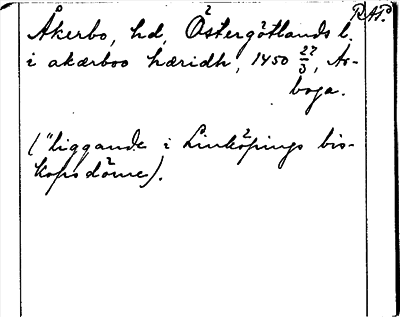 RAP.
Åkerbo, hd, Östergötlands l.
i akærboo hæridh, 1450 22/3, Ar-
boga.
("liggande i Linköpings bis-
kopsdöme).